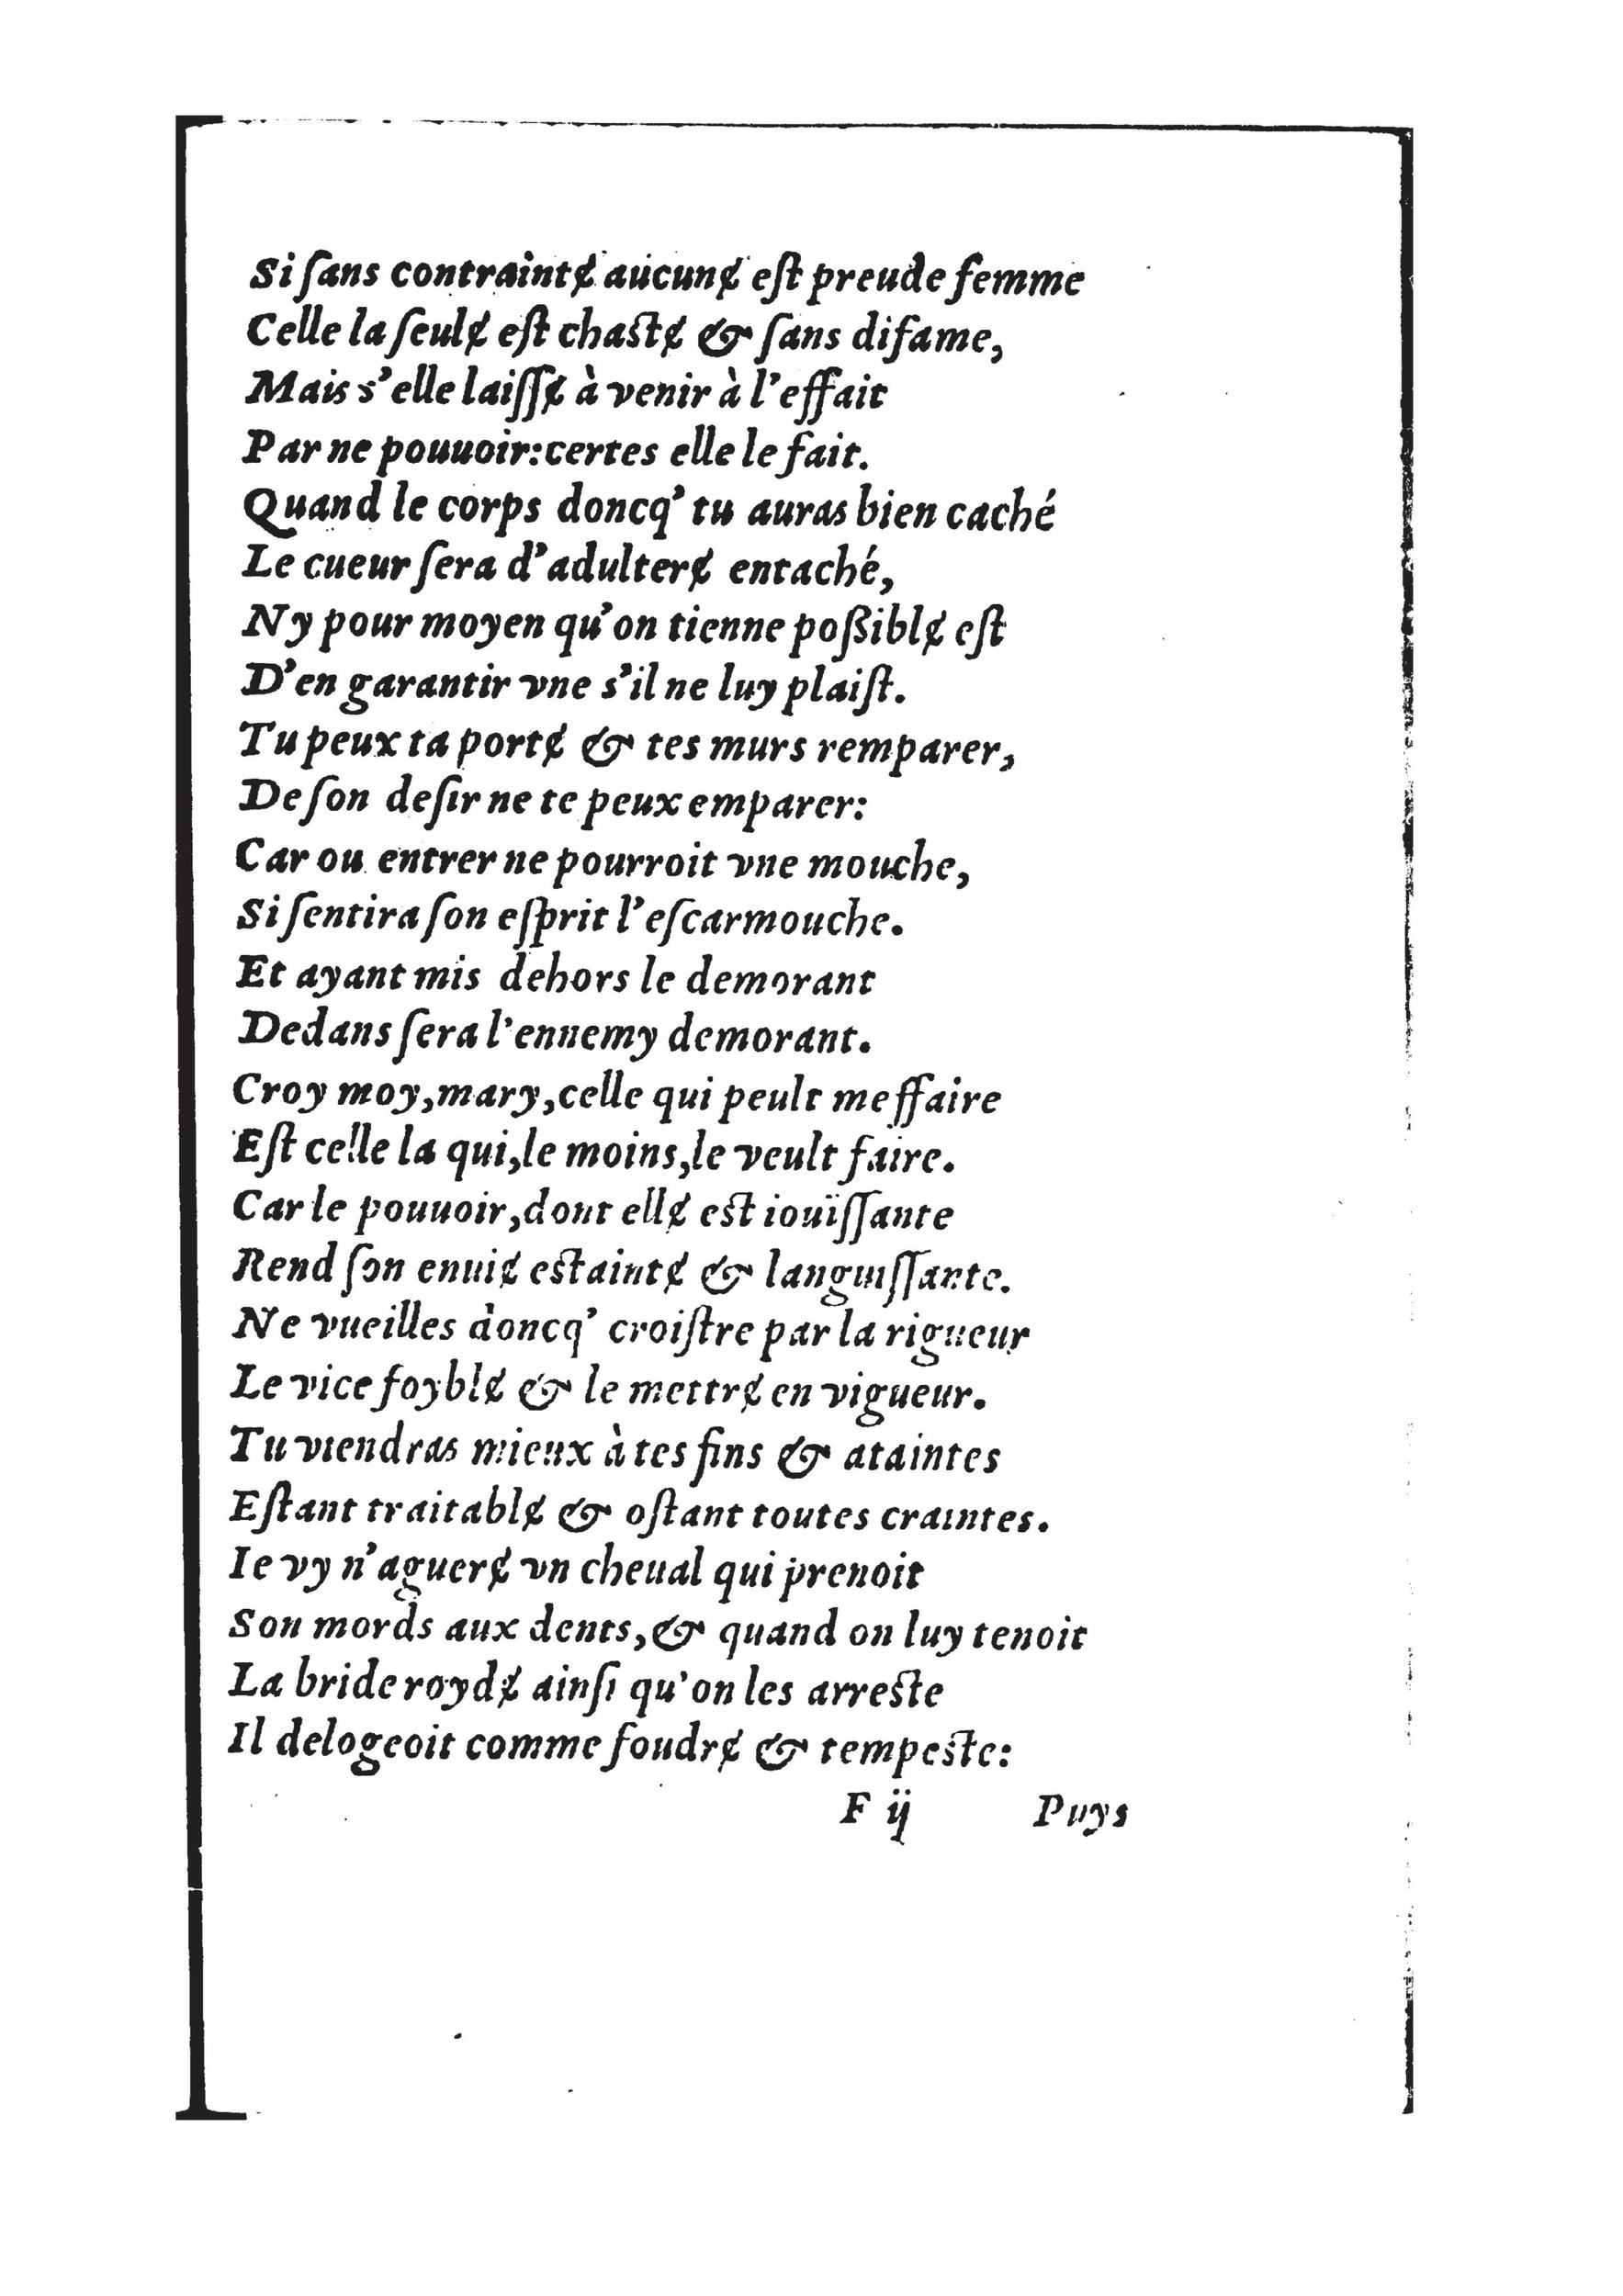 Si ſans contraintɇ aucunɇ eſt preude femme
Celle la ſeulɇ eſt chastɇ & ſans difame,
Mais s'elle laiſſɇ à venir à l'effait
Par ne pouuoir:certes elle le fait.
Quand le corps doncq' tu auras bien caché
Le cueur ſera d'adulterɇ entaché,
Ny pour moyen qu'on tienne poßiblɇ eſt
D'en garantir vne s'il ne luy plaiſt.
Tu peux ta portɇ & tes murs remparer,
De ſon deſir ne te peux emparer:
Car ou entrer ne pourroit vne mouche,
Si ſentira ſon eſprit l'eſcarmouche.
Et ayant mis dehors le demorant
Dedans ſera l'ennemy demorant.
Croy moy,mary,celle qui peult meffaire
Eſt celle la qui,le moins,le veult faire.
Car le pouuoir,dont ellɇ est iouïſſante
Rend ſon enuiɇ estaintɇ & languiſſante.
Ne vueilles doncq' croiſtre par la rigueur
Le vice foyblɇ & le mettrɇ en vigueur.
Tu viendras mieux à tes fins & ataintes
Eſtant traitablɇ & oſtant toutes craintes.
Ie vy n'aguerɇ vn cheual qui prenoit
Son mords aux dents,& quand on luy tenoit
La bride roydɇ ainſi qu'on les arreste
Il delogeoit comme foudrɇ & tempeste:
F ij Puys